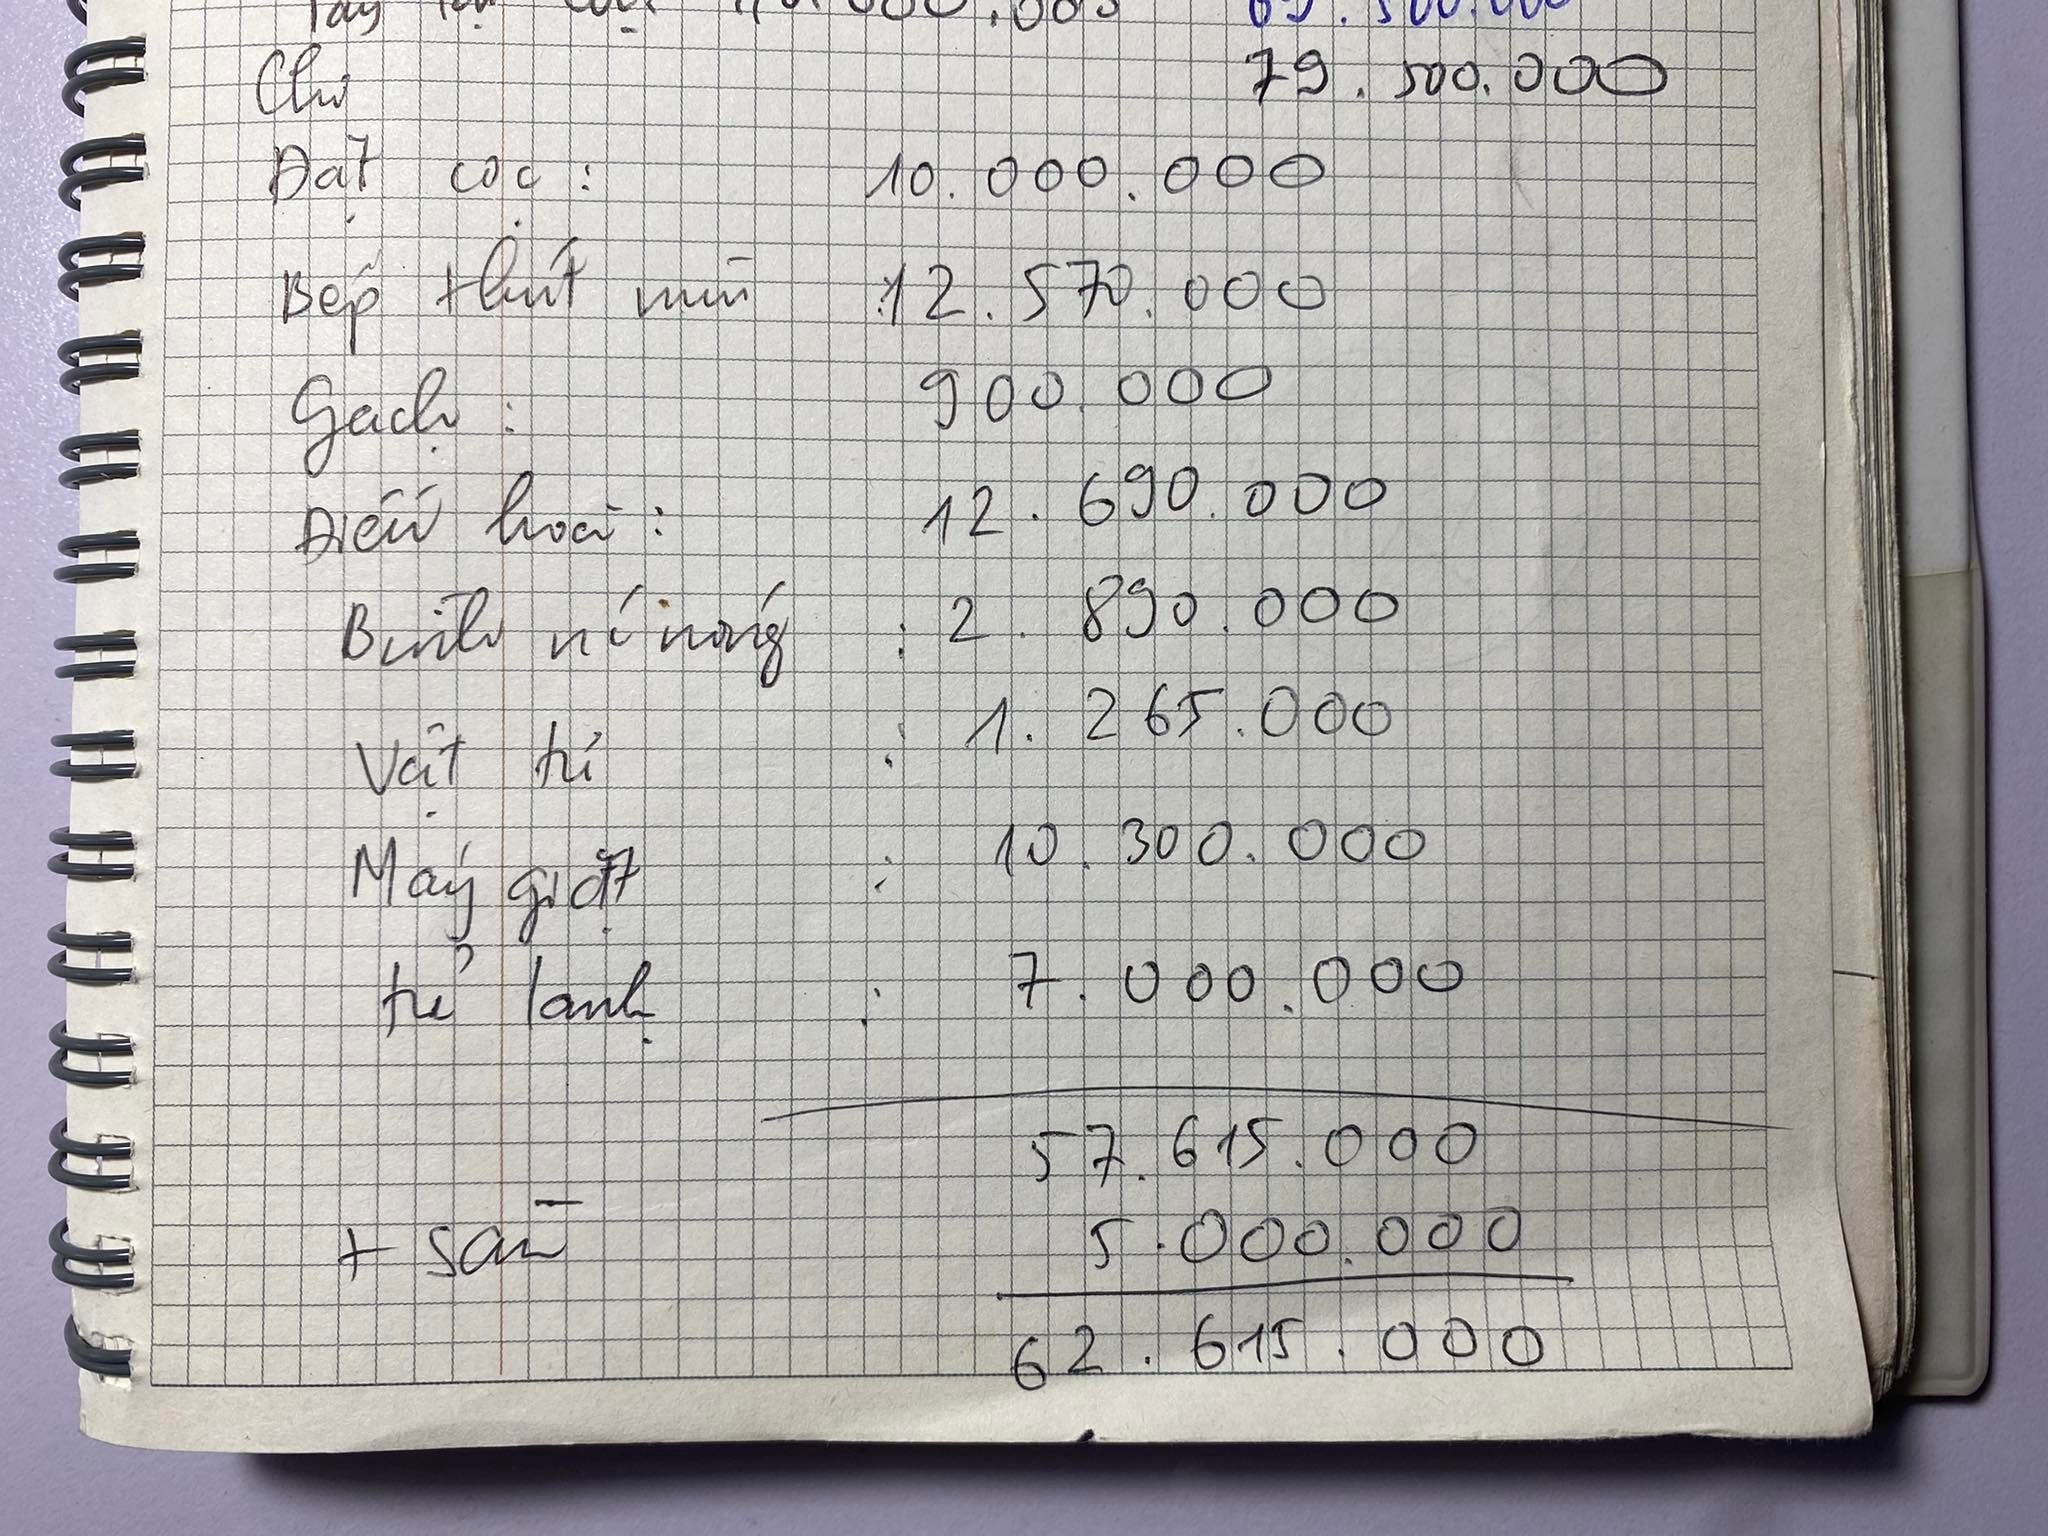 000.000 69.500.000
Chi 79.500.000
Đặt cọc : 10.000.000
Bếp + hút mùi : 12.570.000
Gạch : 900.000
Điều hoà : 12.690.000
Bình nóng : 2.890.000
Vật tư : 1.265.000
Máy giặt : 10.300.000
tủ lạnh : 7.000.000
57.615.000
+ sàn 5.000.000
62.615.000